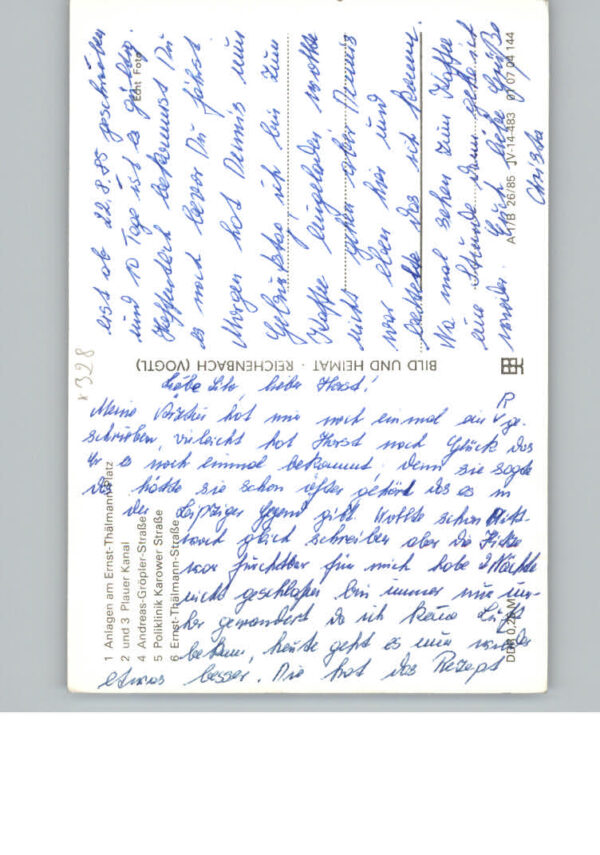 Liebe Lilo, lieber Horst!
Meine Ärztin hat mir noch einmal ein R ge-
schrieben, vieleicht hat Horst noch Glück das
Er es noch einmal bekommt, denn sie sagte
da hätte sie schon öfter gehört das es in
der Leipziger Gegend gibt. Wollte schon Mitt-
woch gleich schreiben aber die Hitze
war furchtbar für mich habe 2 Nächte
nicht geschlafen bin immer nur um-
her gewandert da ich keine Luft
bekam, heute geht es mir wieder
etwas besser. Sie hat das Rezept
erst ab 22.8.85 geschrieben
und 10 Tage ist es gültig.
Hoffentlich bekommst Du
es noch bevor Du fährst
Morgen hat Dennis nun
Geburtstag ich bin zum
Kaffe eingeladen wollte
nicht gehen aber Dennis
war eben hin und
bettelte das ich komme.
Na mal sehen zum Kaffee
eine Stunde dann gehe ich
wieder. Euch liebe Grüße
Christa
x 328
1 Anlagen am Ernst-Thälmann-Platz
2 und 3 Plauer Kanal
4 Andreas-Gröpler-Straße
5 Poliklinik Karower Straße
6 Ernst-Thälmann-Straße
DDR 0,25 M
BILD UND HEIMAT · REICHENBACH (VOGTL)
Echt Foto
A 1/B 26/85 JV-14-483 01 07 04 144